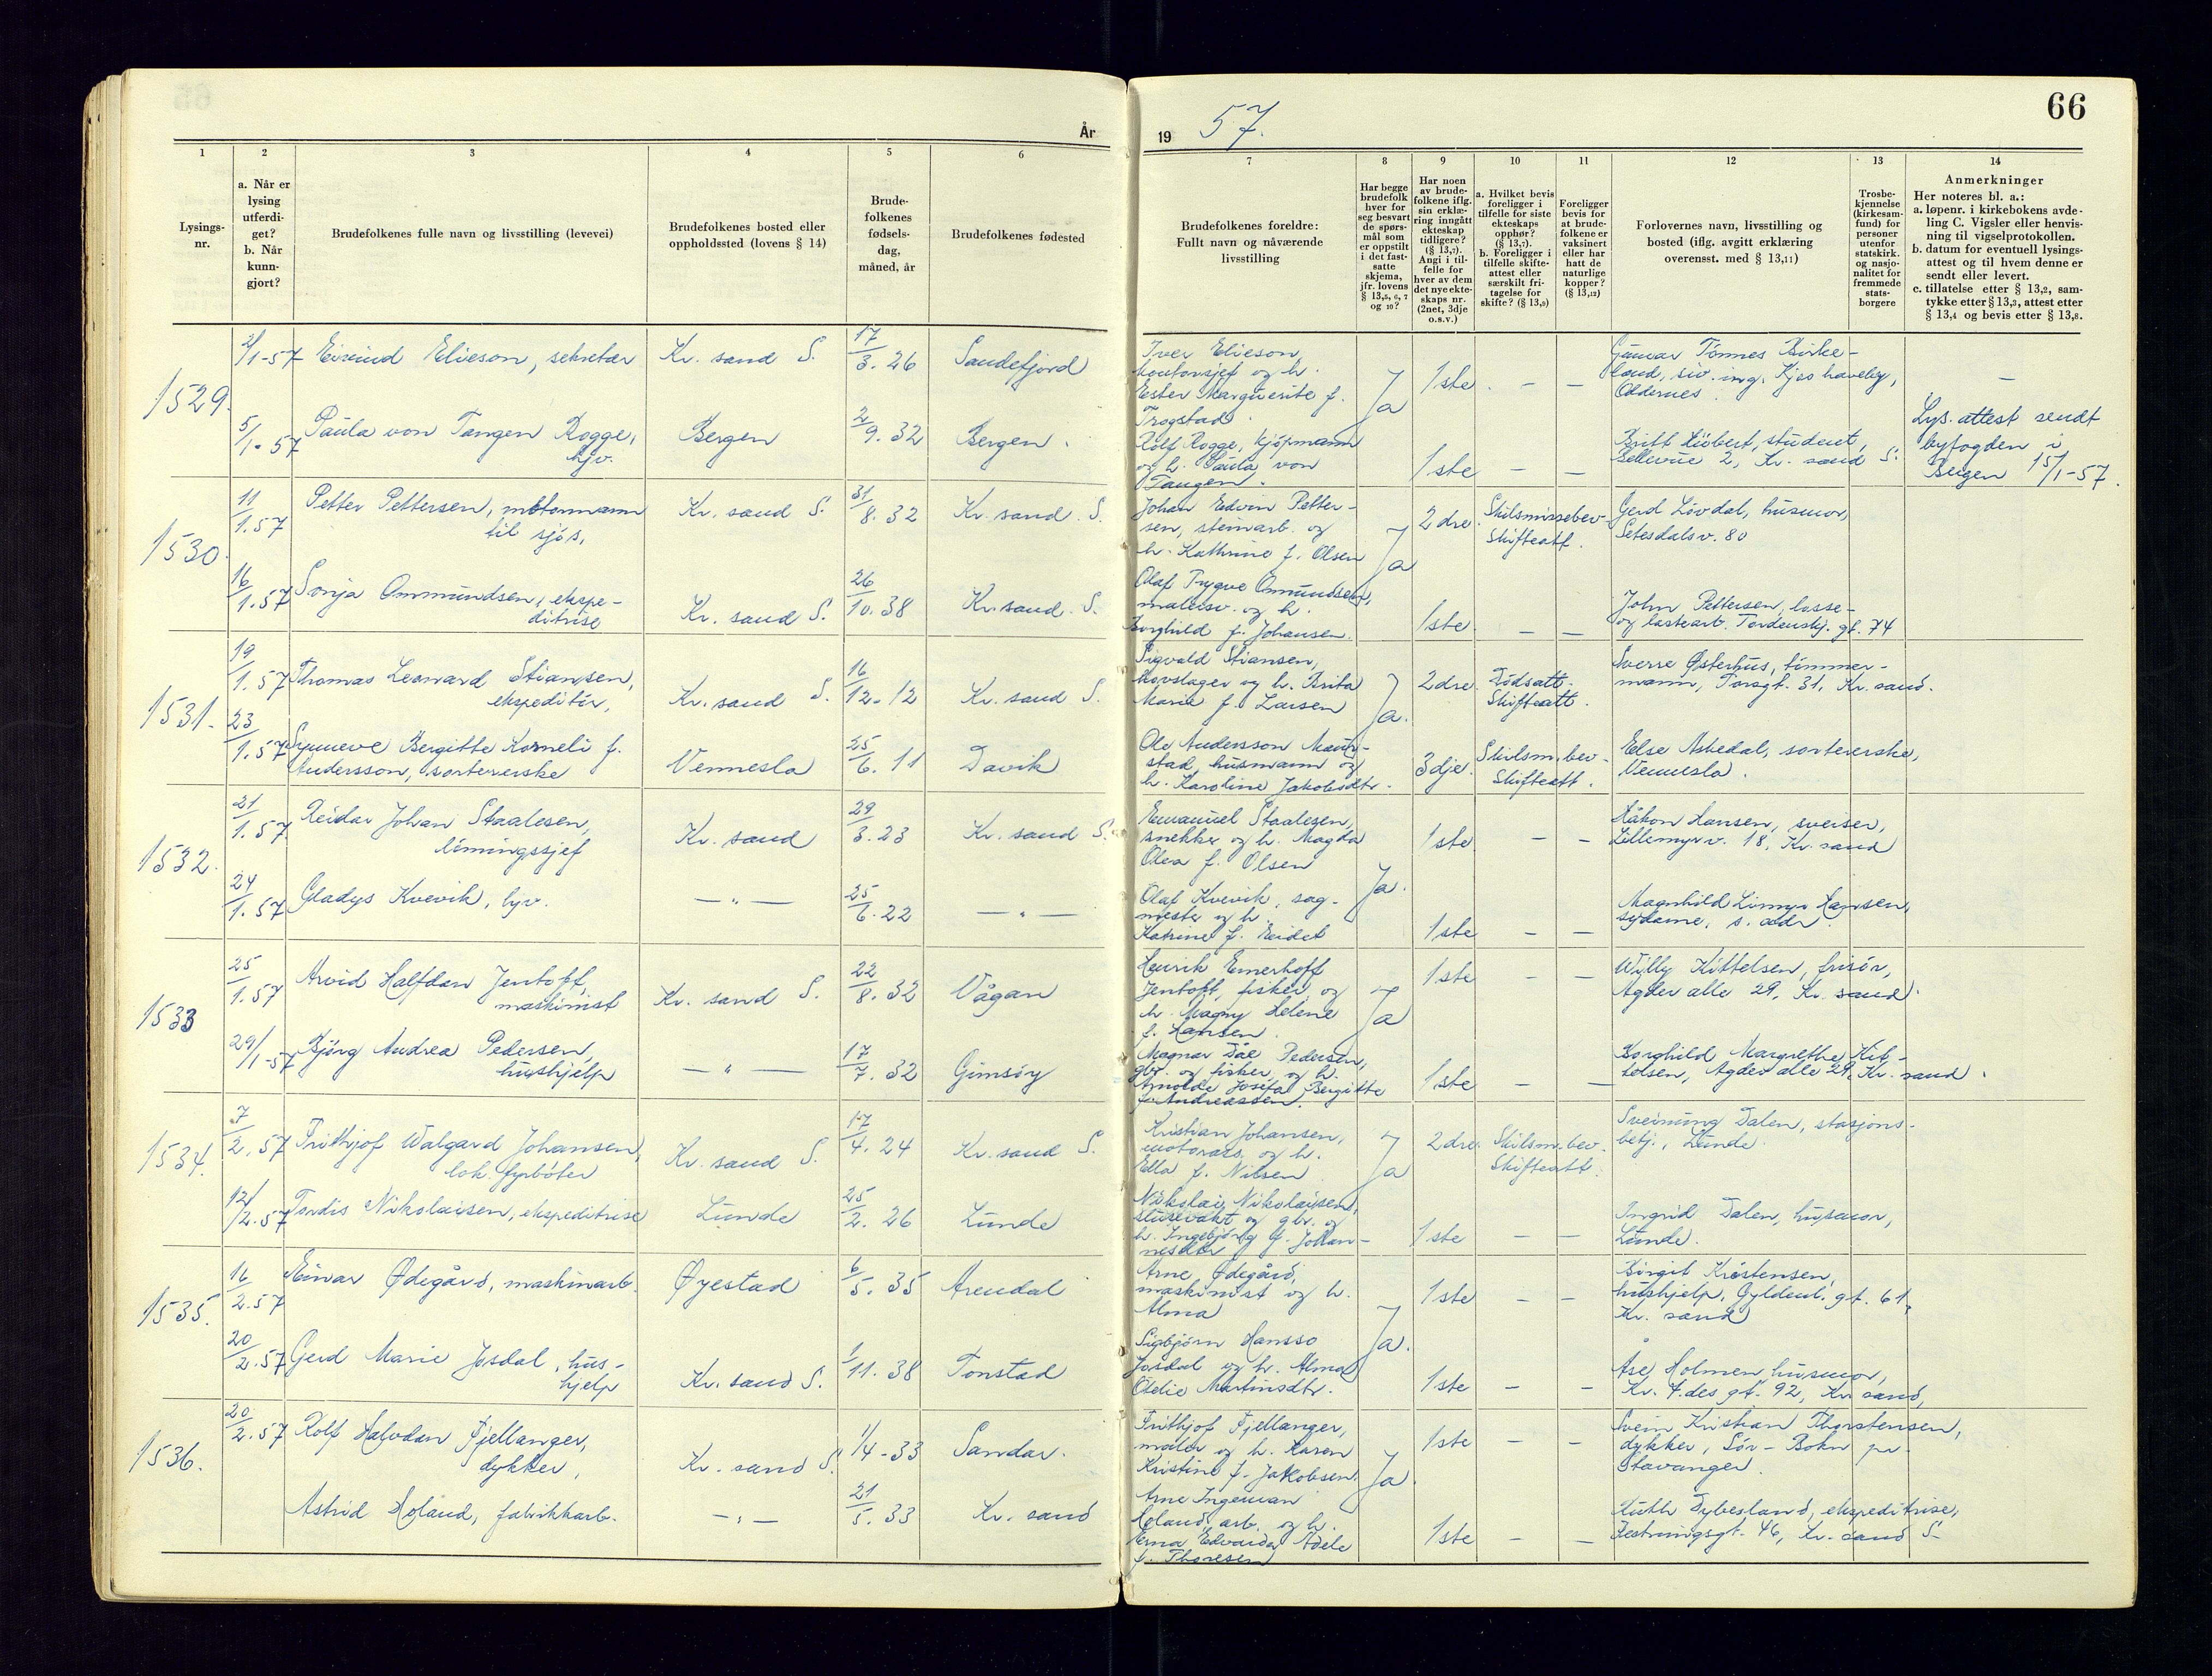 66
År
19 57.
1
2
3
4
5
6
7
8
9
10
11
12
13
14
Lysings-
nr.
a. Når er
lysing
utferdi-
get?
b. Når
kunn-
gjort?
Brudefolkenes fulle navn og livsstilling (levevei)
Brudefolkenes bosted eller
oppholdssted (lovens § 14)
Brude-
folkenes
fødsels-
dag,
måned, år
Brudefolkenes fødested
Brudefolkenes foreldre:
Fullt navn og nåværende
livsstilling
Har begge
brudefolk
hver for
seg besvart
de spørs-
mål som
er oppstilt
i det fast-
satte
skjema,
jfr. lovens
§ 13,5, 6, 7
og 10?
Har noen
av brude-
folkene iflg.
sin erklæ-
ring inngått
ekteskap
tidligere?
(§ 13,7).
Angi i til-
felle for
hver av dem
det nye ekte-
skaps nr.
(2net, 3dje
o.s.v.)
a. Hvilket bevis
foreligger i
tilfelle for siste
ekteskaps
opphør?
(§ 13,7).
b. Foreligger i
tilfelle skifte-
attest eller
særskilt fri-
tagelse for
skifte? (§ 13,9)
Foreligger
bevis for
at brude-
folkene er
vaksinert
eller har
hatt de
naturlige
kopper?
(§ 13,12)
Forlovernes navn, livsstilling og
bosted (iflg. avgitt erklæring
overensst. med § 13,11)
Trosbe-
kjennelse
(kirkesam-
fund) for
personer
utenfor
statskirk.
og nasjo-
nalitet for
fremmede
stats-
borgere
Anmerkninger
Her noteres bl. a.:
a. løpenr. i kirkebokens avde-
ling C. Vigsler eller henvis-
ning til vigselprotokollen.
b. datum for eventuell lysings-
attest og til hvem denne er
sendt eller levert.
c. tillatelse etter § 13,2, sam-
tykke etter § 13,3, attest etter
§ 13,4 og bevis etter § 13,8.
1529.
2/1-57 Eivind Elieson, sekretær
Kr. sand S.
17/3. 26
Sandefjord
Iver Elieson,
kontorsjef og h.
Ester Marguerite f.
Trogstad.
Ja
1ste. — —
Gunnar Tønnes Birke-
land, siv. ing. Kjos haveby,
Oddernes.
—
5/1-57 Paula von Tangen Rogge,
hjv.
Bergen
2/9. 32
Bergen.
Rolf Rogge, kjøpmann
og h. Paula von
Tangen.
1ste — —
Britt Hübert, student,
Bellevue 2, Kr. sand S.
Lys. attest sendt
byfogden i
Bergen 15/1-57.
1530.
11/1.57 Petter Pettersen, motormann
til sjøs,
Kr. sand S.
31/8. 32
Kr. sand. S.
Johan Edvin Petter-
sen, steinarb. og
h. Kathrine f. Olsen
Ja
2dre. Skilsmissebev.
Skifteatt.
Gerd Løvdal, husmor,
Setesdalsv. 80
16/1.57 Sonja Ommundsen, ekspe-
ditrise
Kr. sand S.
26/10. 38
Kr. sand. S.
Olaf Trygve Ommundsen,
malersv. og h.
Borghild f. Johansen.
1ste. — —
John Pettersen, losse-
og lastearb. Tordenskj. gt. 74
1531.
19/1.57 Thomas Leonard Stiansen,
ekspeditør,
Kr. sand S.
16/12. 12
Kr. sand S.
Sigvald Stiansen,
hovslager og h. Brita
Marie f. Larsen
Ja.
2dre. Dødsatt.
Skifteatt.
Sverre Østerhus, tømmer-
mann, Torsgt. 31, Kr. sand.
23/1.57 Synneve Bergitte Korneli f.
Andersson, sortererske
Vennesla
25/6. 11
Davik
Ole Andersson Maur-
stad, husmann og
h. Karoline Jakobsdtr.
3dje. Skilsm. bev.
Skifteatt.
Else Askedal, sortererske,
Vennesla.
1532.
21/1.57 Reidar Johan Staalesen,
limingssjef
Kr. sand
29/3. 23
Kr. sand S.
Emanuel Staalesen,
snekker og h. Magda
Olea f. Olsen
Ja.
1ste — —
Håkon Hansen, sveiser,
Lillemyrv. 18, Kr. sand
24/1.57 Gladys Kvevik, hjv.
— " —
25/6. 22
— " —
Olaf Kvevik, sag-
mester og h.
Katrine f. Eidet
1ste — —
Magnhild Hansen,
sydame, s. adr.
1533
25/1.57 Arvid Halfdan Jentoft,
maskinist
Kr. sand S.
22/8. 32
Vågan
Henrik Emerhoff
Jentoft, fisker, og
h. Magny Helene
f. Hansen.
Ja
1ste — —
Willy Kittelsen, frisør,
Agder alle 29, Kr. sand.
29/1-57 Bjørg Andrea Pedersen,
hushjelp
— " —
17/7. 32
Gimsøy
Magnar Dåe Pedersen,
gbr. og fisker, og h.
Arnolde Josefa Bergitte
f. Andreassen.
1ste — —
Borghild Margrethe Kit-
telsen, Agder alle 29, Kr. sand.
1534.
7/2.57 Frithjof Walgard Johansen,
lok. fyrbøter
Kr. sand S.
17/4. 24
Kr. sand S.
Kristian Johansen,
og h.
Ella f. Nilsen
Ja
2dre. Skilsm. bev.
Skifteatt.
Sveinung Dalen, stasjons-
betj., Lunde.
12/2.57 Tordis Nikolaisen, ekspeditrise
Lunde
25/2. 26
Lunde
Nikolai Nikolaisen,
slusevakt og gbr. og
h. Ingebjørg f. Johan-
nesdtr
1ste — —
Ingrid Dalen, husmor,
Lunde.
1535.
16/2.57 Einar Ødegård, maskinarb.
Øyestad
6/5. 35
Arendal
Arne Ødegård,
maskinist og h.
Alma
Ja.
1ste — —
Birgit Kristensen,
hushjelp, Gyldenl. gt. 61,
Kr. sand
20/2.57 Gerd Marie Josdal, hus-
hjelp
Kr. sand S.
1/11. 38
Tonstad
Sigbjørn Hansso
Josdal og h. Alma
Odelie Martinsdtr.
1ste — —
Åse Holmen, husmor,
Kr. 4.des gt. 92, Kr. sand,
1536.
20/2.57 Rolf Halvdan Fjellanger,
dykker,
Kr. sand S.
1/4-33
Sandar.
Frithjof Fjellanger,
maler og h. Karen
Kristine f. Jakobsen.
Ja.
1ste — —
Svein Kristian Thorstensen,
dykker, Sør-Bokn pr.
Stavanger.
Astrid Høland, fabrikkarb.
— " —
21/5. 33
Kr. sand
Arne Ingeman
Høland, arb. og h.
Erna Edvarda Adele
f. Thoresen
1ste — —
Ruth Dybesland, ekspeditrise,
Festningsgt. 46, Kr. sand S.